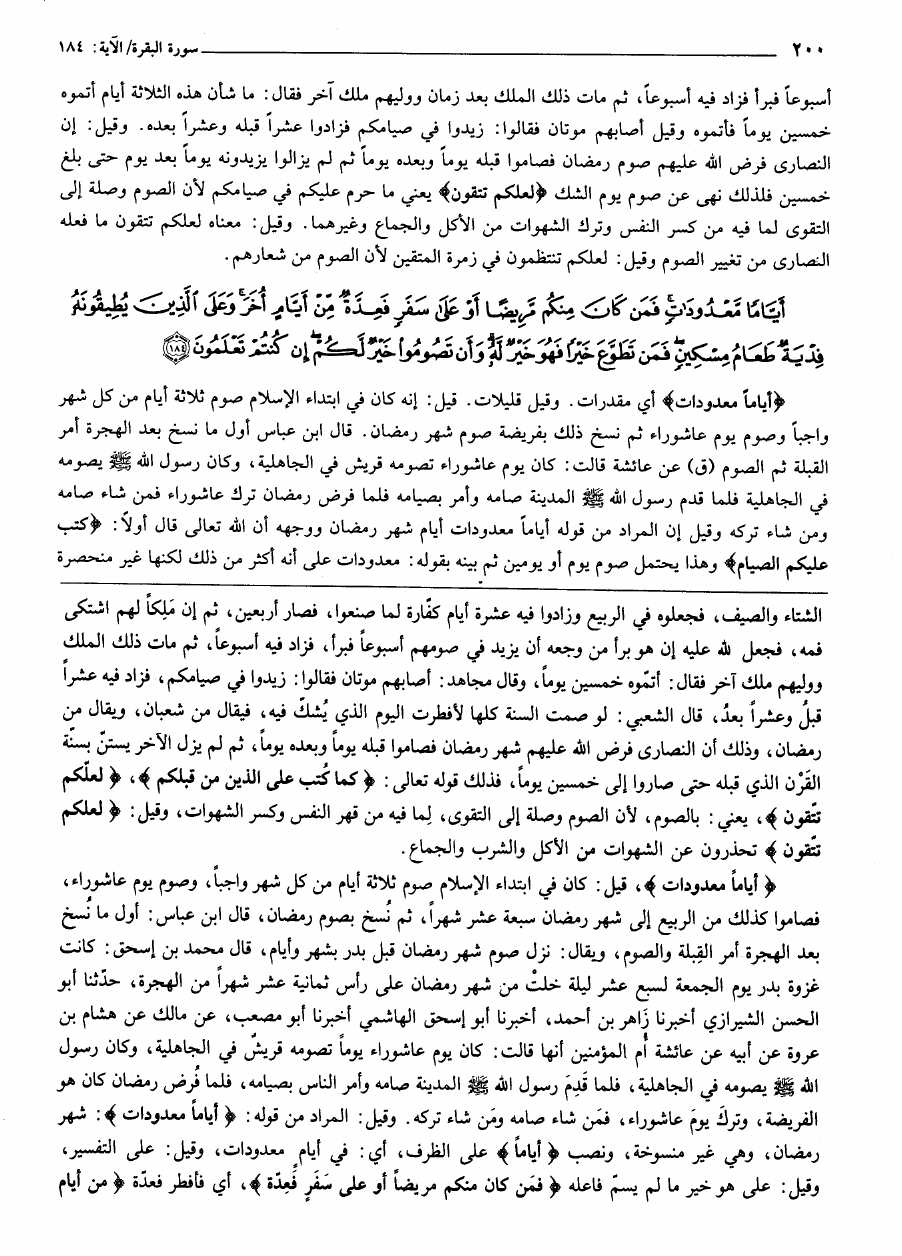 ٢٠٠ سورة البقرة/ الآية: ١٨٤
أسبوعاً فبرأ فزاد فيه أسبوعاً، ثم مات ذلك الملك بعد زمان ووليهم ملك آخر فقال: ما شأن هذه الثلاثة أيام أتموه
خمسين يوماً فأتموه وقيل أصابهم موتان فقالوا: زيدوا في صيامكم فزادوا عشراً قبله وعشراً بعده. وقيل: إن
النصارى فرض الله عليهم صوم رمضان فصاموا قبله يوماً وبعده يوماً ثم لم يزالوا يزيدونه يوماً بعد يوم حتى بلغ
خمسين فلذلك نهى عن صوم يوم الشك ﴿لعلكم تتقون﴾ يعني ما حرم عليكم في صيامكم لأن الصوم وصلة إلى
التقوى لما فيه من كسر النفس وترك الشهوات من الأكل والجماع وغيرهما. وقيل: معناه لعلكم تتقون ما فعله
النصارى من تغيير الصوم وقيل: لعلكم تنتظمون في زمرة المتقين لأن الصوم من شعارهم.
أَيَّامًا مَّعْدُودَاتٍ ۚ فَمَن كَانَ مِنكُم مَّرِيضًا أَوْ عَلَىٰ سَفَرٍ فَعِدَّةٌ مِّنْ أَيَّامٍ أُخَرَ ۚ وَعَلَى ٱلَّذِينَ يُطِيقُونَهُۥ
فِدْيَةٌ طَعَامُ مِسْكِينٍ ۖ فَمَن تَطَوَّعَ خَيْرًا فَهُوَ خَيْرٌ لَّهُۥ ۚ وَأَن تَصُومُوا۟ خَيْرٌ لَّكُمْ ۖ إِن كُنتُمْ تَعْلَمُونَ ﴿١٨٤﴾
﴿أياماً معدودات﴾ أي مقدرات. وقيل قليلات. قيل: إنه كان في ابتداء الإسلام صوم ثلاثة أيام من كل شهر
واجباً وصوم يوم عاشوراء ثم نسخ ذلك بفريضة صوم شهر رمضان. قال ابن عباس أول ما نسخ بعد الهجرة أمر
القبلة ثم الصوم (ق) عن عائشة قالت: كان يوم عاشوراء تصومه قريش في الجاهلية، وكان رسول الله ﷺ يصومه
في الجاهلية فلما قدم رسول الله ﷺ المدينة صامه وأمر بصيامه فلما فرض رمضان ترك عاشوراء فمن شاء صامه
ومن شاء تركه وقيل إن المراد من قوله أياماً معدودات أيام شهر رمضان ووجهه أن الله تعالى قال أولاً: ﴿كتب
عليكم الصيام﴾ وهذا يحتمل صوم يوم أو يومين ثم بينه بقوله: معدودات على أنه أكثر من ذلك لكنها غير منحصرة
الشتاء والصيف، فجعلوه في الربيع وزادوا فيه عشرة أيام كفّارة لما صنعوا، فصار أربعين، ثم إن مَلِكاً لهم اشتكى
فمه، فجعل لله عليه إن هو برأ من وجعه أن يزيد في صومهم أسبوعاً فبرأ، فزاد فيه أسبوعاً، ثم مات ذلك الملك
ووليهم ملك آخر فقال: أتمّوه خمسين يوماً، وقال مجاهد: أصابهم موتان فقالوا: زيدوا في صيامكم، فزاد فيه عشراً
قبلُ وعشراً بعدُ، قال الشعبي: لو صمت السنة كلها لأفطرت اليوم الذي يُشكّ فيه، فيقال من شعبان، ويقال من
رمضان، وذلك أن النصارى فرض الله عليهم شهر رمضان فصاموا قبله يوماً وبعده يوماً، ثم لم يزل الآخر يستنّ بسنّة
القَرْن الذي قبله حتى صاروا إلى خمسين يوماً، فذلك قوله تعالى: ﴿ كما كُتب على الذين من قبلكم ﴾، ﴿ لعلّكم
تتّقون ﴾، يعني: بالصوم، لأن الصوم وصلة إلى التقوى، لِما فيه من قهر النفس وكسر الشهوات، وقيل: ﴿ لعلكم
تتّقون ﴾ تحذرون عن الشهوات من الأكل والشرب والجماع.
﴿ أياماً معدودات ﴾، قيل: كان في ابتداء الإسلام صوم ثلاثة أيام من كل شهر واجباً، وصوم يوم عاشوراء،
فصاموا كذلك من الربيع إلى شهر رمضان سبعة عشر شهراً، ثم نُسخ بصوم رمضان، قال ابن عباس: أول ما نُسخ
بعد الهجرة أمر القِبلة والصوم، ويقال: نزل صوم شهر رمضان قبل بدر بشهر وأيام، قال محمد بن إسحق: كانت
غزوة بدر يوم الجمعة لسبع عشر ليلة خلتْ من شهر رمضان على رأس ثمانية عشر شهراً من الهجرة، حدّثنا أبو
الحسن الشيرازي أخبرنا زَاهر بن أحمد، أخبرنا أبو إسحق الهاشمي أخبرنا أبو مصعب، عن مالك عن هشام بن
عروة عن أبيه عن عائشة أم المؤمنين أنها قالت: كان يوم عاشوراء يوماً تصومه قريشٌ في الجاهلية، وكان رسول
الله ﷺ يصومه في الجاهلية، فلما قَدِمَ رسول الله ﷺ المدينة صامه وأمر الناس بصيامه، فلما فُرض رمضان كان هو
الفريضة، وتركَ يومَ عاشوراء، فمَن شاء صامه ومَن شاء تركه. وقيل: المراد من قوله: ﴿ أياماً معدودات ﴾: شهر
رمضان، وهي غير منسوخة، ونصب ﴿ أياماً ﴾ على الظرف، أي: في أيامٍ معدودات، وقيل: على التفسير،
وقيل: على هو خير ما لم يسمّ فاعله ﴿ فمَن كان منكم مريضاً أو على سَفَرٍ فَعِدّة ﴾، أي فأفطر فعدّة ﴿ من أيام